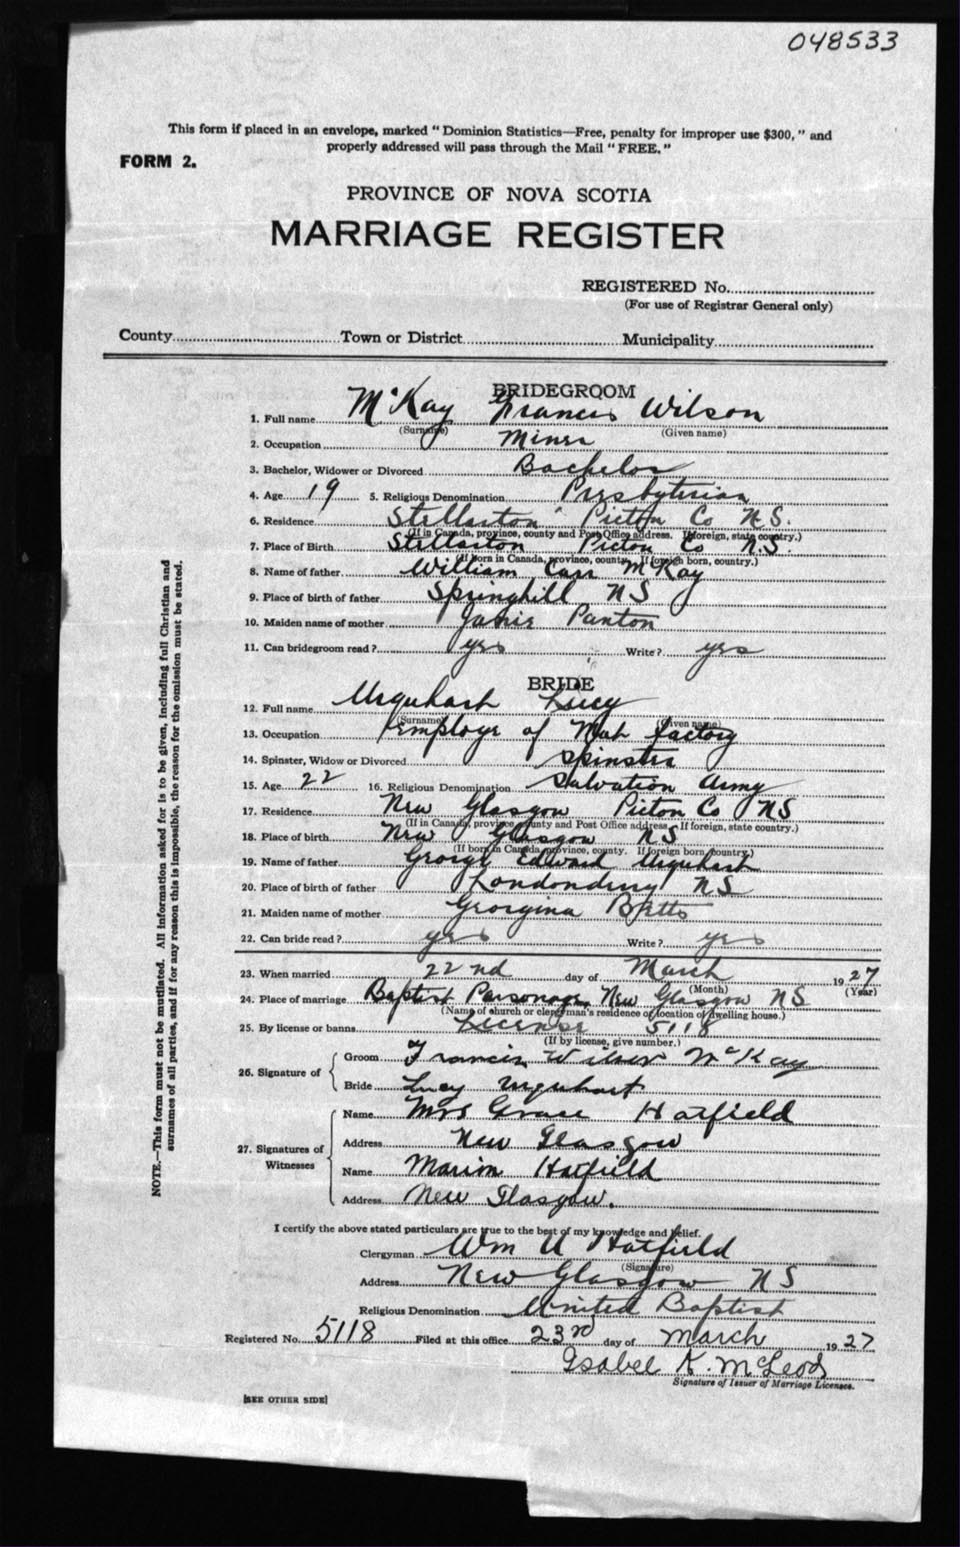 048533
This form if placed in an envelope, marked "Dominion Statistics—Free, penalty for improper use $300," and
properly addressed will pass through the Mail "FREE."
FORM 2.
PROVINCE OF NOVA SCOTIA
MARRIAGE REGISTER
REGISTERED No.
(For use of Registrar General only)
County Town or District Municipality
BRIDEGROOM
1. Full name McKay Francis Wilson
(Surname) (Given name)
2. Occupation Miner
3. Bachelor, Widower or Divorced Bachelor
4. Age 19 5. Religious Denomination Presbyterian
6. Residence Stellarton Pictou Co N.S.
(If in Canada, province, county and Post Office address. If foreign, state country.)
7. Place of Birth Stellarton Pictou Co N.S.
(If born in Canada, province, county. If foreign born, country.)
8. Name of father William Carr McKay
9. Place of birth of father Springhill NS
10. Maiden name of mother Panton
11. Can bridegroom read? yes Write? yes
BRIDE
12. Full name Urquhart Lucy
(Surname) (Given name)
13. Occupation Employe of factory
14. Spinster, Widow or Divorced Spinster
15. Age 22 16. Religious Denomination Salvation Army
17. Residence New Glasgow Pictou Co NS
(If in Canada, province, county and Post Office address. If foreign, state country.)
18. Place of birth New Glasgow NS
(If born in Canada, province, county. If foreign born, country.)
19. Name of father George Edward Urquhart
20. Place of birth of father Londonderry NS
21. Maiden name of mother Georgina Betts
22. Can bride read? yes Write? yes
23. When married 22nd day of March 1927
(Month) (Year)
24. Place of marriage Baptist Parsonage, New Glasgow NS
(Name of church or clergyman's residence or location of dwelling house.)
25. By license or banns License 5118
(If by license, give number.)
26. Signature of
Groom Francis Wilson McKay
Bride Lucy Urquhart
27. Signatures of Witnesses
Name Mrs Grace Hatfield
Address New Glasgow
Name Marion Hatfield
Address New Glasgow.
I certify the above stated particulars are true to the best of my knowledge and belief.
Clergyman Wm A Hatfield
(Signature)
Address New Glasgow NS
Religious Denomination United Baptist
Registered No. 5118 Filed at this office 23rd day of March 1927
Isabel K. McLeod
Signature of Issuer of Marriage Licenses.
[SEE OTHER SIDE]
NOTE.—This form must not be mutilated. All information asked for is to be given, including full Christian and
surnames of all parties, and if for any reason this is impossible, the reason for the omission must be stated.